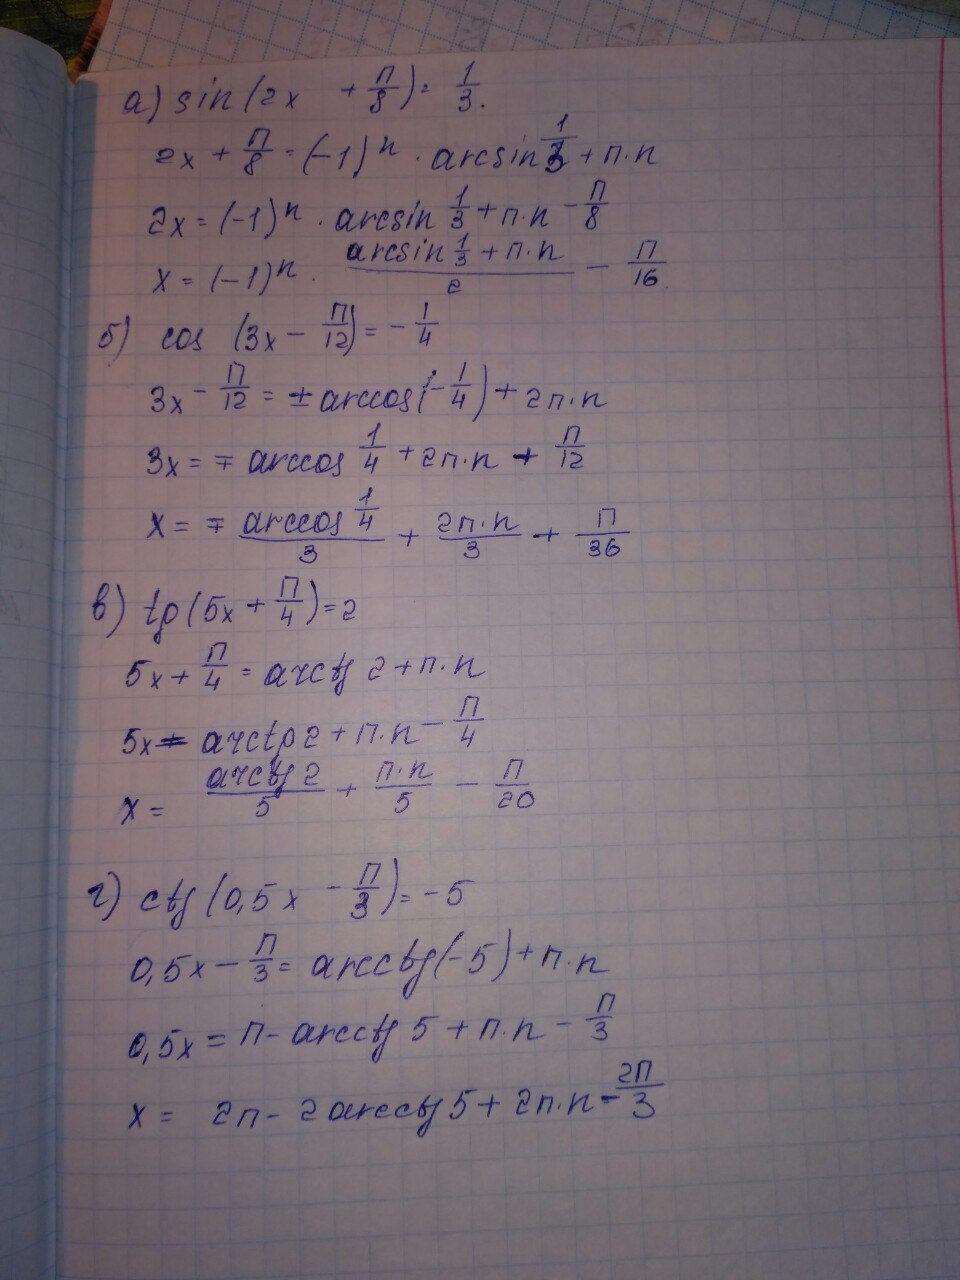 а) sin(2x + П/8) = 1/3.
2x + П/8 = (-1)ⁿ · arcsin 1/3 + П·n
2x = (-1)ⁿ · arcsin 1/3 + П·n - П/8
x = (-1)ⁿ · (arcsin 1/3 + П·n)/2 - П/16
б) cos (3x - П/12) = - 1/4
3x - П/12 = ± arccos(- 1/4) + 2П·n
3x = ∓ arccos 1/4 + 2П·n + П/12
x = ∓ (arccos 1/4)/3 + 2П·n/3 + П/36
в) tg(5x + П/4) = 2
5x + П/4 = arctg 2 + П·n
5x = arctg 2 + П·n - П/4
x = arctg 2/5 + П·n/5 - П/20
г) ctg(0,5x - П/3) = -5
0,5x - П/3 = arcctg(-5) + П·n
0,5x = П - arcctg 5 + П·n - П/3
x = 2П - 2arcctg 5 + 2П·n - 2П/3